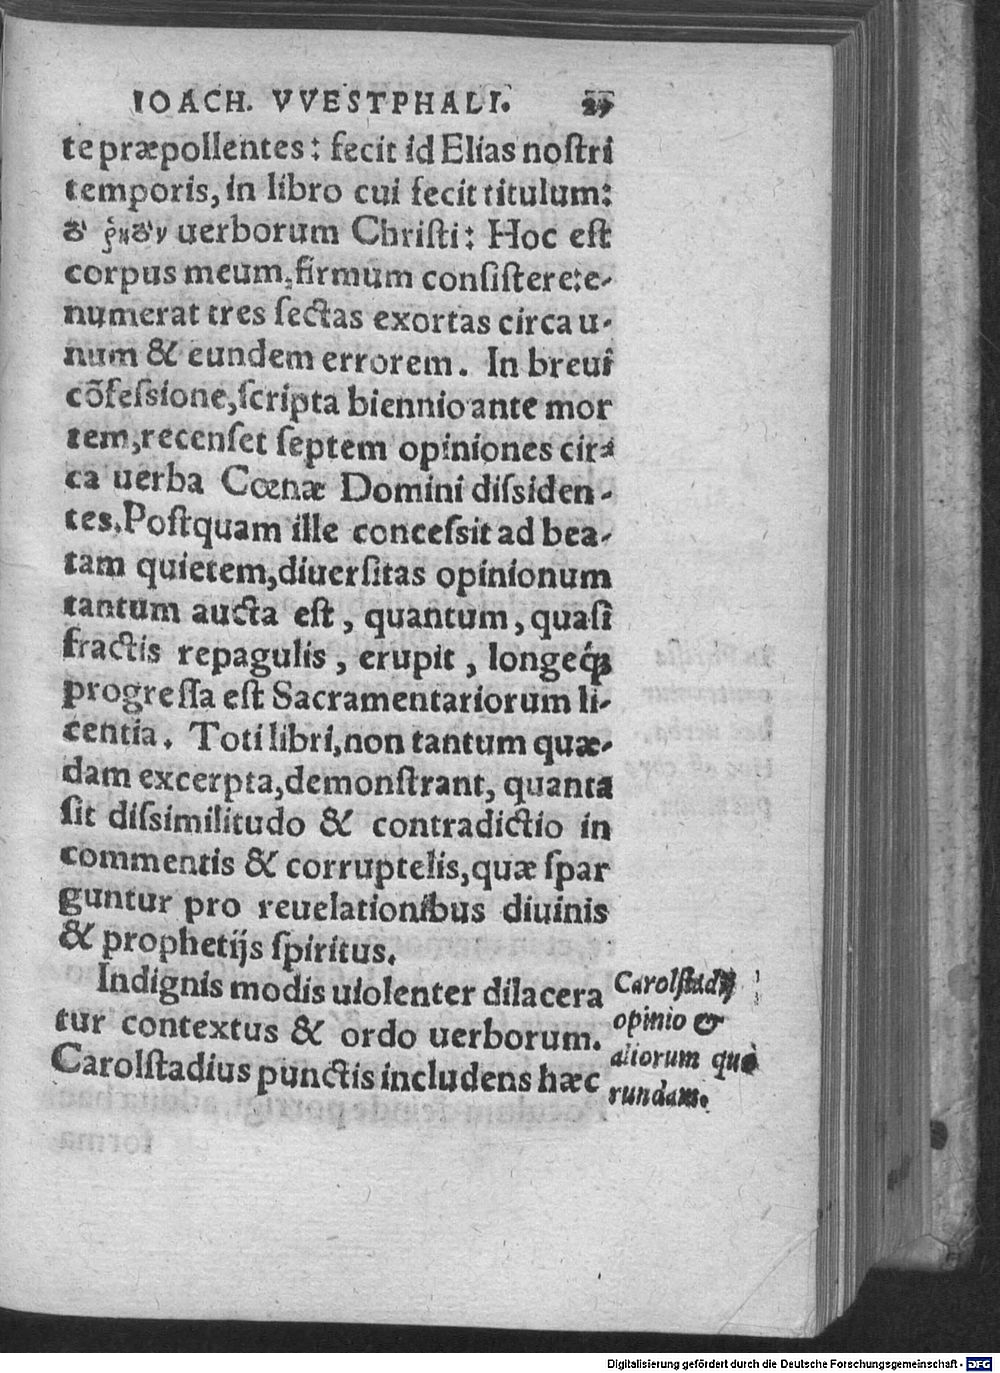 IOACH. VVESTPHALI. 27
te præpollentes: fecit id Elias noſtri
temporis, in libro cui fecit titulum:
uerborum Chriſti: Hoc eſt
corpus meum, firmum conſiſtere: e-
numerat tres ſectas exortas circa u-
num & eundem errorem. In breui
cõfeſsione, ſcripta biennio ante mor
tem, recenſet ſeptem opiniones cir-
ca uerba Cœnæ Domini diſsiden-
tes. Poſtquam ille conceſsit ad bea-
tam quietem, diuerſitas opinionum
tantum aucta eſt, quantum, quaſi
fractis repagulis, erupit, longeq́;
progreſſa eſt Sacramentariorum li-
centia. Toti libri, non tantum quæ-
dam excerpta, demonſtrant, quanta
ſit diſsimilitudo & contradictio in
commentis & corruptelis, quæ ſpar
guntur pro reuelationibus diuinis
& prophetijs ſpiritus.
Indignis modis uiolenter dilacera
tur contextus & ordo uerborum.
Carolſtadius punctis includens hæc
Carolſtadij
opinio &
aliorum quo
rundam.
Digitalisierung gefördert durch die Deutsche Forschungsgemeinschaft - DFG